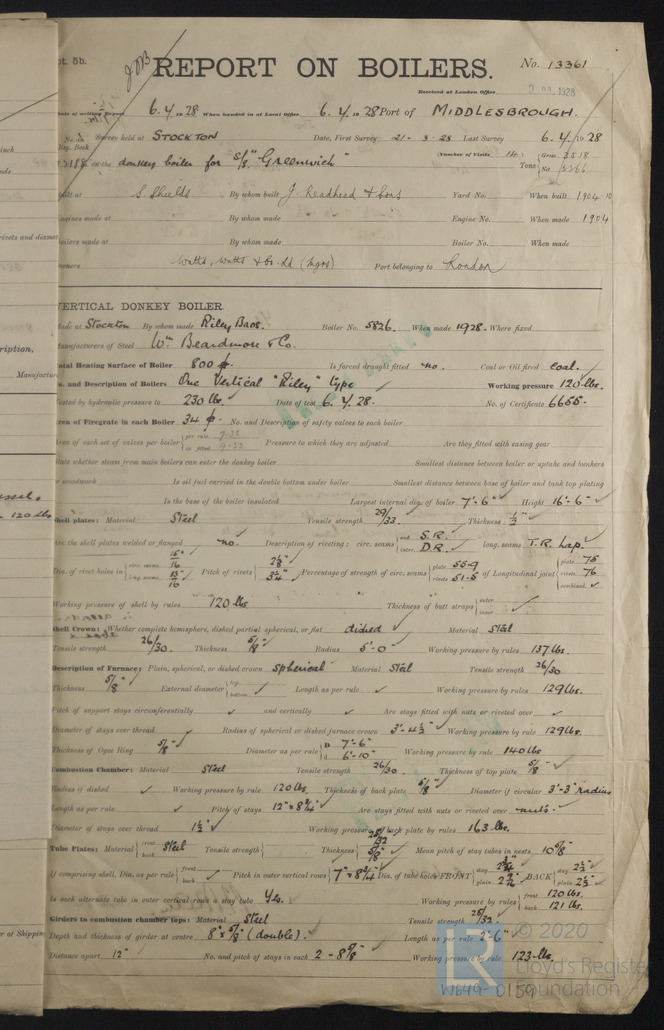 pt. 5b.
REPORT ON BOILERS.
No. 13361
Received at London Office
1928
Date of writing Report 6. 4. 1928 When handed in at Local Office 6. 4. 1928 Port of MIDDLESBROUGH.
No. in Survey held at STOCKTON Date, First Survey 21-3-28 Last Survey 6. 4. 1928
Reg. Book
on the donkey boiler for S/S "Greenwich" (Number of Visits 14) Tons Gross Net
Built at S. Shields By whom built J. Readhead & Sons Yard No. When built 1904 10
Engines made at By whom made Engine No. When made 1904
Boilers made at By whom made Boiler No. When made
Owners Watts, Watts & Co. Ld (Mgrs) Port belonging to London
VERTICAL DONKEY BOILER.
Made at Stockton By whom made Riley Bros. Boiler No. 5826. When made 1928. Where fixed
Manufacturers of Steel Wm. Beardmore & Co.
Total Heating Surface of Boiler 800 Is forced draught fitted no. Coal or Oil fired coal.
No. and Description of Boilers One Vertical "Riley" type Working pressure 120 lbs.
Tested by hydraulic pressure to 230 lbs. Date of test 6. 4. 28. No. of Certificate 6655.
Area of Firegrate in each Boiler 34 No. and Description of safety valves to each boiler
Area of each set of valves per boiler per rule as fitted Pressure to which they are adjusted Are they fitted with easing gear
State whether steam from main boilers can enter the donkey boiler Smallest distance between boiler or uptake and bunkers
or woodwork Is oil fuel carried in the double bottom under boiler Smallest distance between base of boiler and tank top plating
Is the base of the boiler insulated Largest internal dia. of boiler 7'-6" Height 16'-6"
Shell plates: Material Steel Tensile strength 29/33. Thickness 1/2"
Are the shell plates welded or flanged no. Description of riveting: circ. seams end S.R. inter. D.R. long. seams T.R. Lap.
Dia. of rivet holes in circ. seams 15/16" long. seams 15/16" Pitch of rivets Percentage of strength of circ. seams plate 55.9 rivets 51.5 of Longitudinal joint plate 75 rivets 76 combined
Working pressure of shell by rules 120 lbs Thickness of butt straps outer inner
Shell Crown: Whether complete hemisphere, dished partial spherical, or flat dished Material Steel
Tensile strength 26/30. Thickness 5/8" Radius 5'-0" Working pressure by rules 137 lbs.
Description of Furnace: Plain, spherical, or dished crown spherical Material Steel Tensile strength 26/30
Thickness 5/8" External diameter top bottom Length as per rule Working pressure by rules 129 lbs.
Pitch of support stays circumferentially and vertically Are stays fitted with nuts or riveted over
Diameter of stays over thread Radius of spherical or dished furnace crown 3'-4 1/2" Working pressure by rule 129 lbs.
Thickness of Ogee Ring 5/8" Diameter as per rule D 7'-6" d 6'-10" Working pressure by rule 140 lbs
Combustion Chamber: Material Steel Tensile strength 26/30. Thickness of top plate 5/8"
Radius if dished Working pressure by rule 120 lbs. Thickness of back plate 5/8" Diameter if circular 3'-3" radius
Length as per rule Pitch of stays 12" x 8 3/4" Are stays fitted with nuts or riveted over nuts.
Diameter of stays over thread 1 1/2" Working pressure of back plate by rules 163 lbs.
Tube Plates: Material front back Steel Tensile strength Thickness 5/8" Mean pitch of stay tubes in nests 10 5/8"
If comprising shell, Dia. as per rule front back Pitch in outer vertical rows 7" x 8 3/4" Dia. of tube holes FRONT stay plain BACK stay 2 1/2" plain 2 1/2"
Is each alternate tube in outer vertical rows a stay tube Yes. Working pressure by rules front 120 lbs. back 121 lbs.
Girders to combustion chamber tops: Material Steel Tensile strength 28/32
Depth and thickness of girder at centre 8" x 5/8" (double). Length as per rule 2'-6"
Distance apart 12" No. and pitch of stays in each 2 - 8 5/8" Working pressure by rule 123 lbs.
W649-0159
© 2020
Lloyd's Register
Foundation
LR